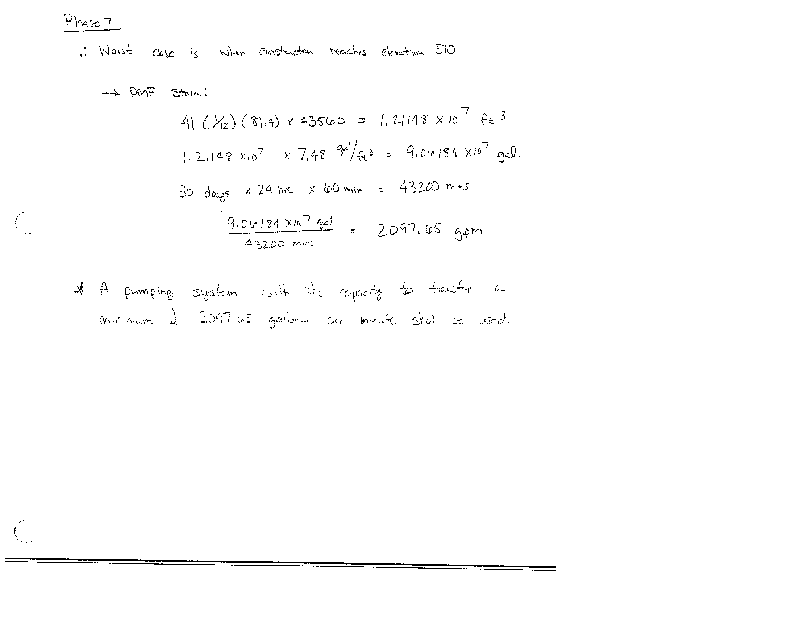 Phase 7
∴ Worst case is when construction reaches elevation 510
→ PMF Storm:
41 (1/12) (81.4) x 43560 = 1.21148 x 10^7 ft^3
1.21148 x10^7 x 7.48 gal/ft^3 = 9.06184 x10^7 gal.
30 days x 24 hrs x 60 min = 43200 mins
9.06184 x10^7 gal / 43200 min = 2097.65 gpm
* A pumping system with the capacity to transfer a
minimum of 2097.65 gallons per minute shall be used.